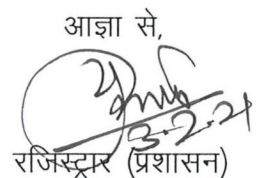 आज्ञा से,
3-2-21
रजिस्ट्रार (प्रशासन)